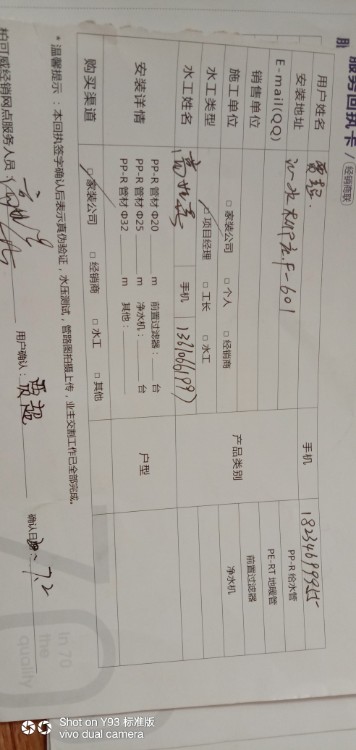 服务回执卡（经销商联）
用户姓名 贾超 手机 18234699955
安装地址
E-mail(QQ) PP-R 给水管
销售单位 PE-RT 地暖管
施工单位 □家装公司 □个人 □经销商 产品类别 前置过滤器
水工类型 □项目经理 □工长 □水工 净水机
水工姓名 手机
安装详情 PP-R 管材 Φ20 m 前置过滤器： 台 户型
PP-R 管材 Φ25 m 净水机： 台
PP-R 管材 Φ32 m 其他：
购买渠道 □家装公司 □经销商 □水工 □其他
* 温馨提示：本回执签字确认后表示真伪验证，水压测试，管路图拍摄上传，业主交割工作已全部完成。
经销网点服务人员 用户确认：贾超 确认日期 7.2
In 70
the
quality
Shot on Y93 标准版
vivo dual camera